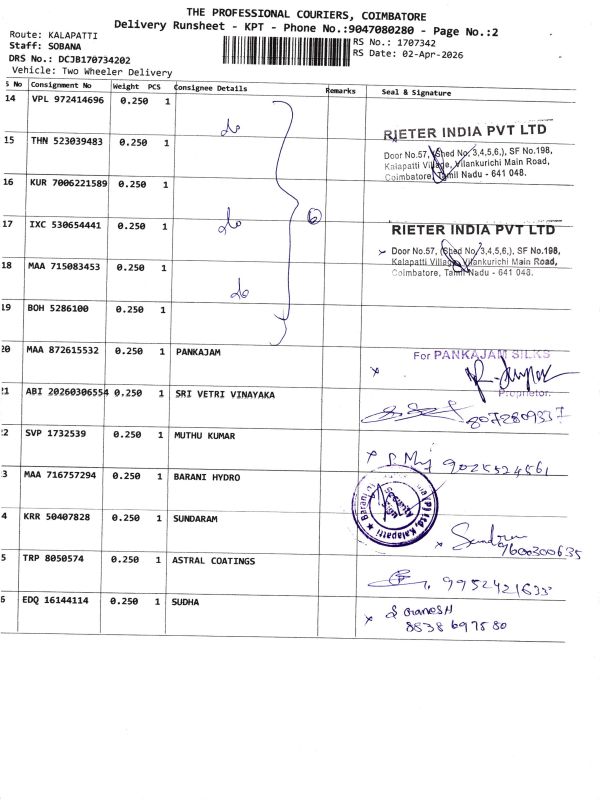 THE PROFESSIONAL COURIERS, COIMBATORE
Delivery Runsheet - KPT - Phone No.:9047080280 - Page No.:2
Route: KALAPATTI
Staff: SOBANA
DRS No.: DCJB170734202
Vehicle: Two Wheeler Delivery
RS No.: 1707342
RS Date: 02-Apr-2026
S No Consignment No Weight PCS Consignee Details Remarks Seal & Signature
14 VPL 972414696 0.250 1
RIETER INDIA PVT LTD
Door No.57, (Shed No. 3,4,5,6,), SF No.198,
Kalapatti Village, Vilankurichi Main Road,
Coimbatore, Tamil Nadu - 641 048.
15 THN 523039483 0.250 1
16 KUR 7006221589 0.250 1
6
17 IXC 530654441 0.250 1
RIETER INDIA PVT LTD
Door No.57, (Shed No. 3,4,5,6,), SF No.198,
Kalapatti Village, Vilankurichi Main Road,
Coimbatore, Tamil Nadu - 641 048.
18 MAA 715083453 0.250 1
19 BOH 5286100 0.250 1
20 MAA 872615532 0.250 1 PANKAJAM
For PANKAJAM SILKS
Proprietor.
21 ABI 20260306554 0.250 1 SRI VETRI VINAYAKA
8072809337
2 SVP 1732539 0.250 1 MUTHU KUMAR
9025524561
3 MAA 716757294 0.250 1 BARANI HYDRO
Kalapatti
4 KRR 50407828 0.250 1 SUNDARAM
9600300635
5 TRP 8050574 0.250 1 ASTRAL COATINGS
6 EDQ 16144114 0.250 1 SUDHA
8838697580